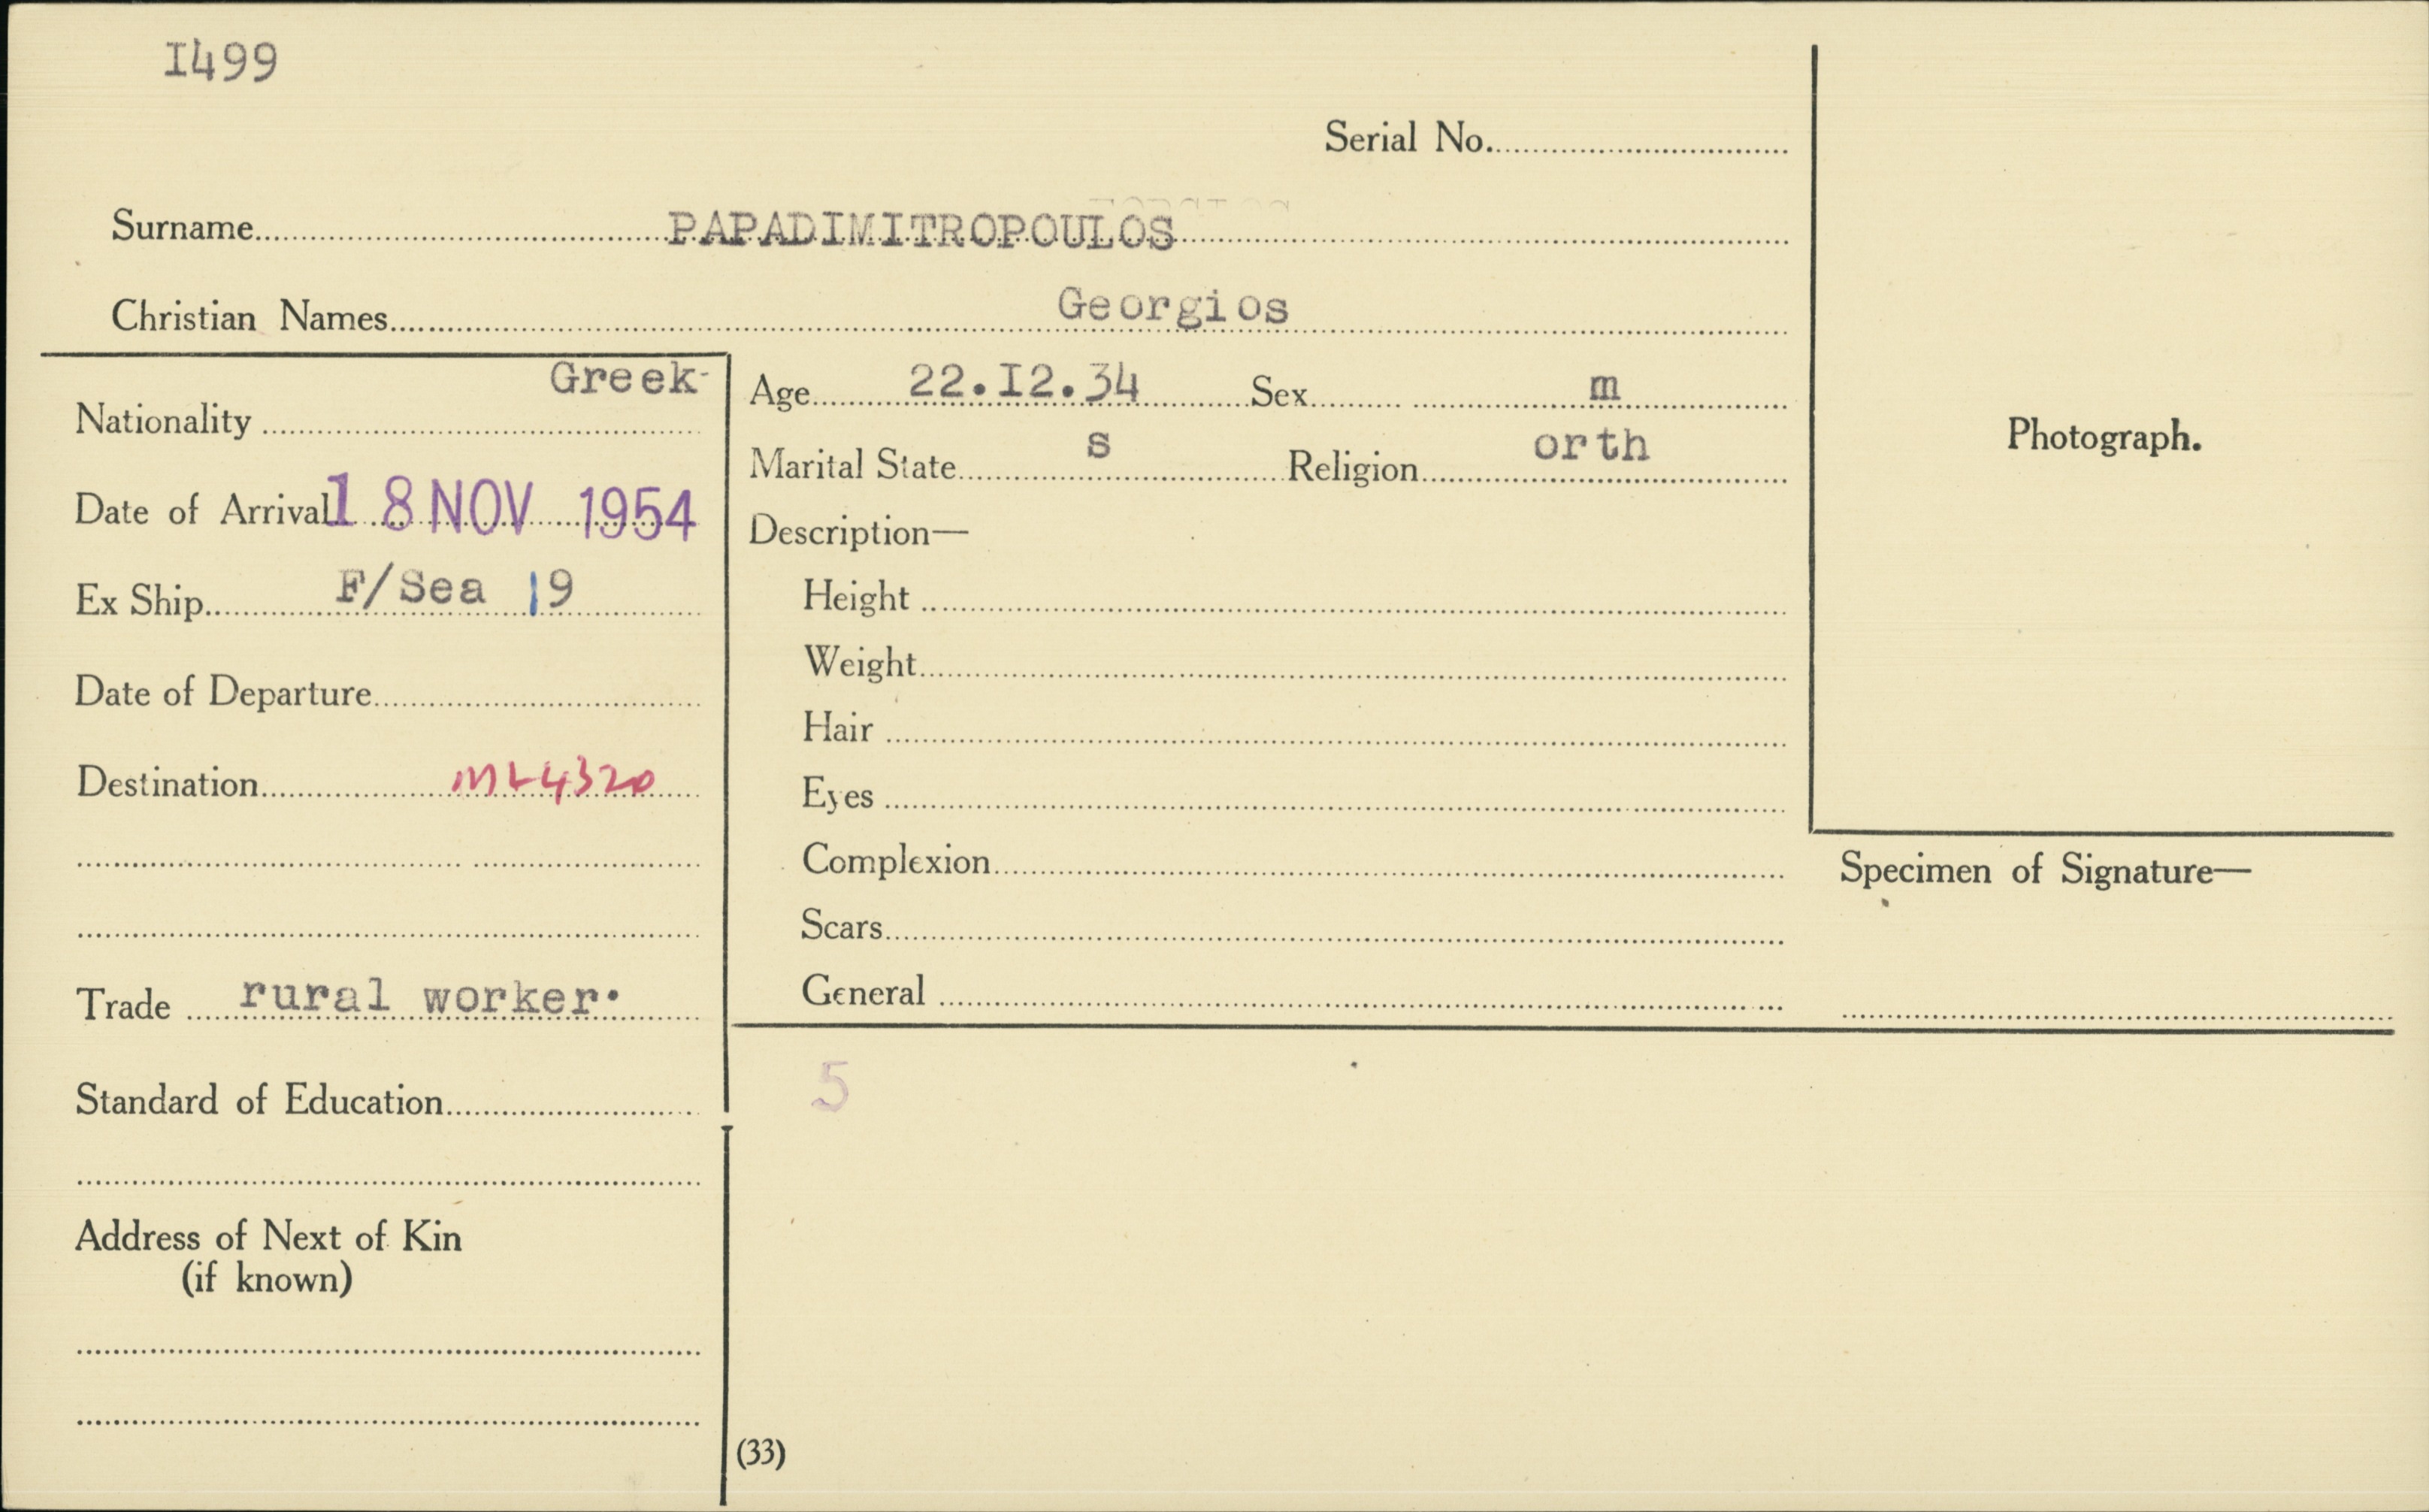 I499
Serial No.
Surname PAPADIMITROPOULOS
Christian Names Georgios
Greek
Nationality
Date of Arrival 18 NOV 1954
Ex Ship F/Sea 19
Date of Departure
Destination ML4320
Trade rural worker.
Standard of Education
Address of Next of Kin
(if known)
Age 22.I2.34 Sex m
Marital State s Religion orth
Description—
Height
Weight
Hair
Eyes
Complexion
Scars
General
5
(33)
Photograph.
Specimen of Signature—